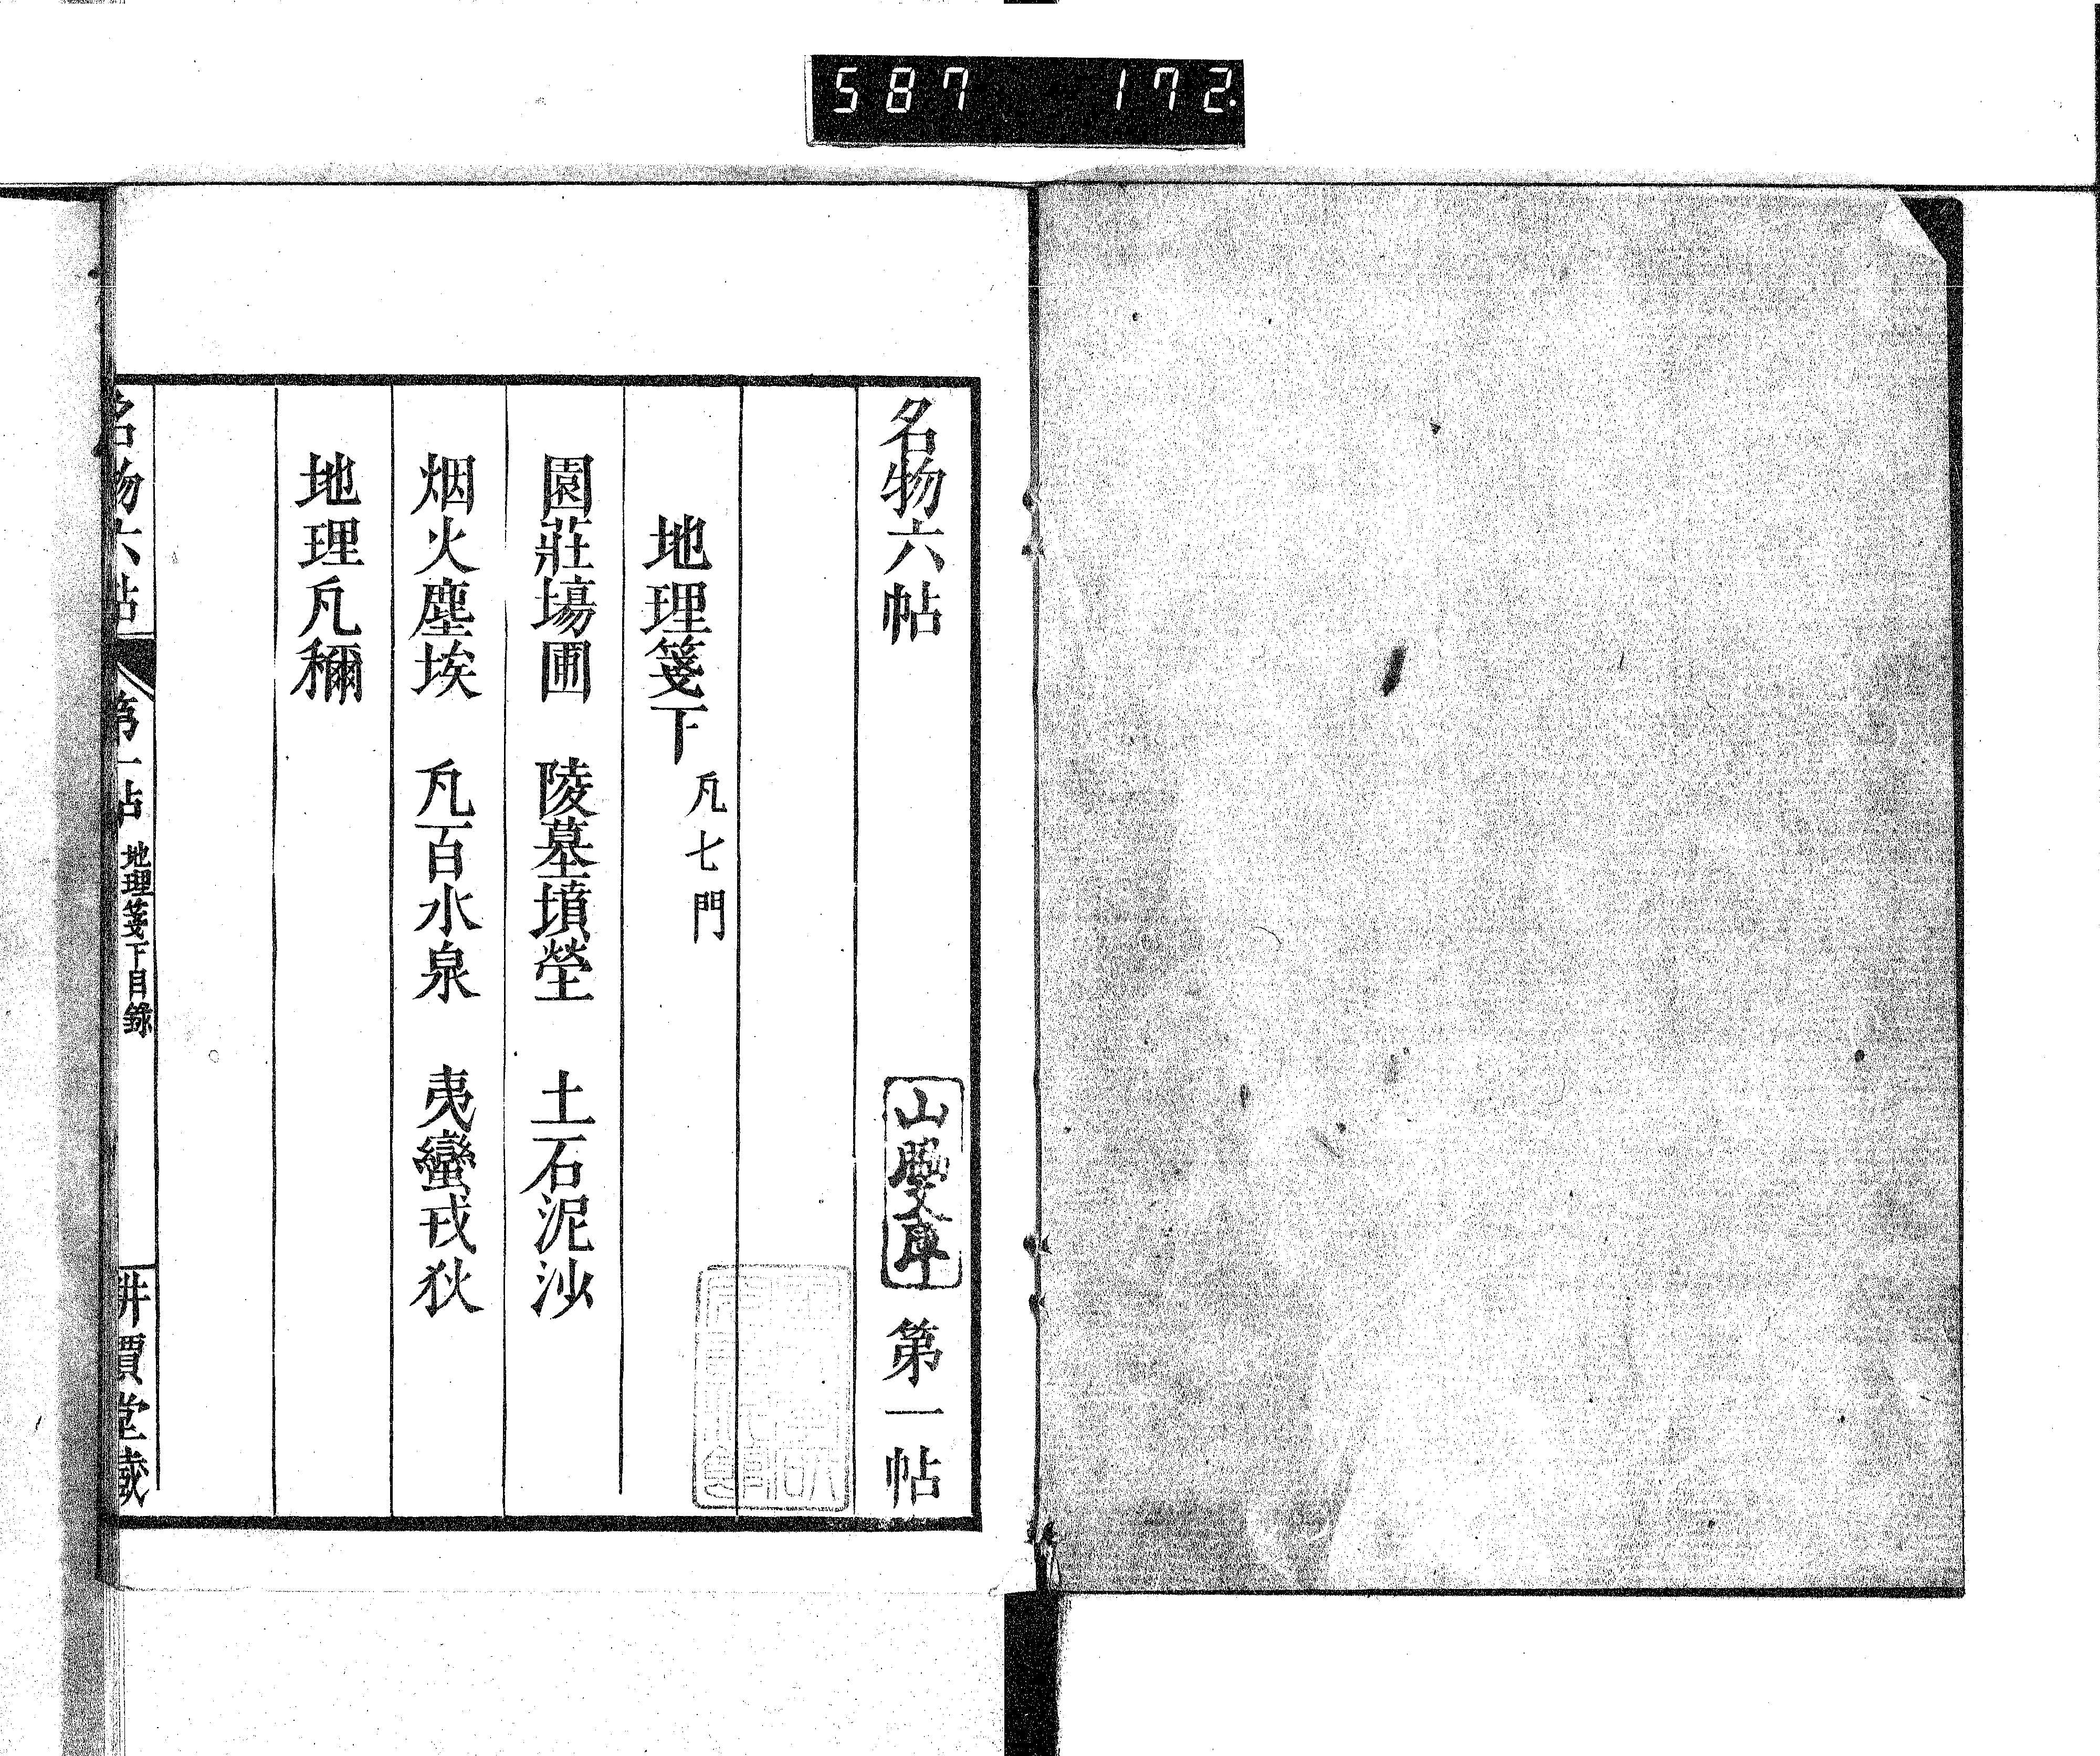 587 172.
名物六帖 第一帖
地理箋下 凢七門
園莊場圃 陵墓墳塋 土石泥沙
烟火塵埃 凢百水泉 夷蠻戎狄
地理凢稱
名物六帖 第一帖 地理箋下目錄
堂藏